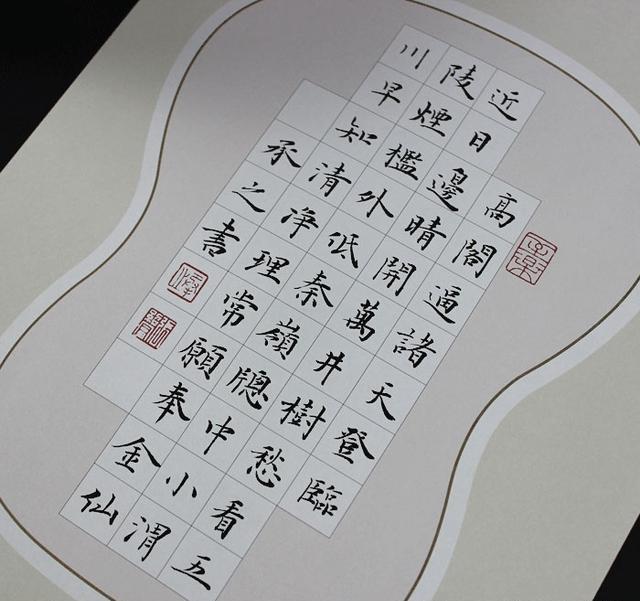 高閣逼諸天登臨
近日邊晴開萬井樹愁看五
陵煙檻外低秦嶺牎中小渭
川早知清净理常願奉金仙
承之書